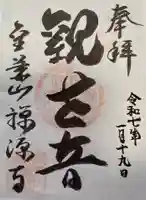 奉拝
令和七年
一月十九日
観世音
金葉山禅源寺